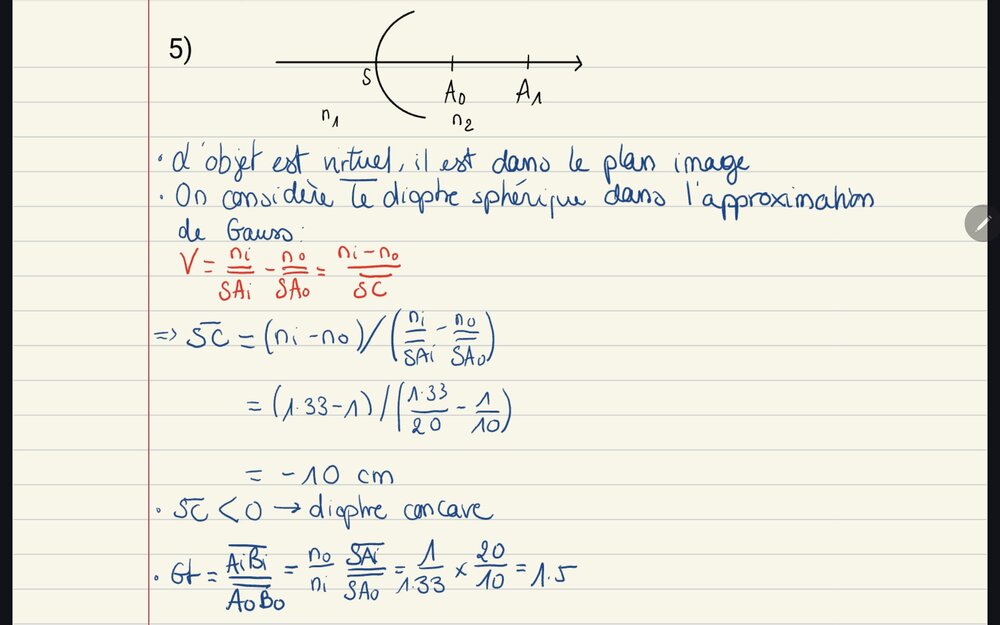 5)
S A₀ A₁
n₁ n₂
· L'objet est virtuel, il est dans le plan image
· On considère le dioptre sphérique dans l'approximation
de Gauss:
V = ni/SAi - no/SAo = ni-no/SC
=> SC = (ni-no)/(ni/SAi - no/SAo)
= (1.33-1)/(1.33/20 - 1/10)
= -10 cm
· SC < 0 → dioptre concave
· Gt = AiBi/AoBo = no/ni SAi/SAo = 1/1.33 × 20/10 = 1.5